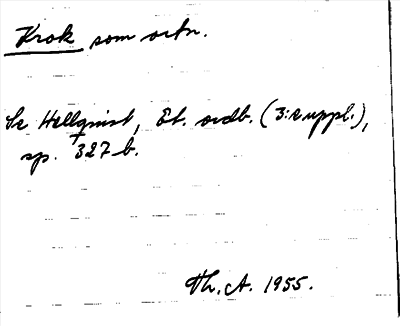 Krok som ortn.
Se Hellquist, Et. ordb. (3:e uppl.),
sp. 327 b.
Th. A. 1955.